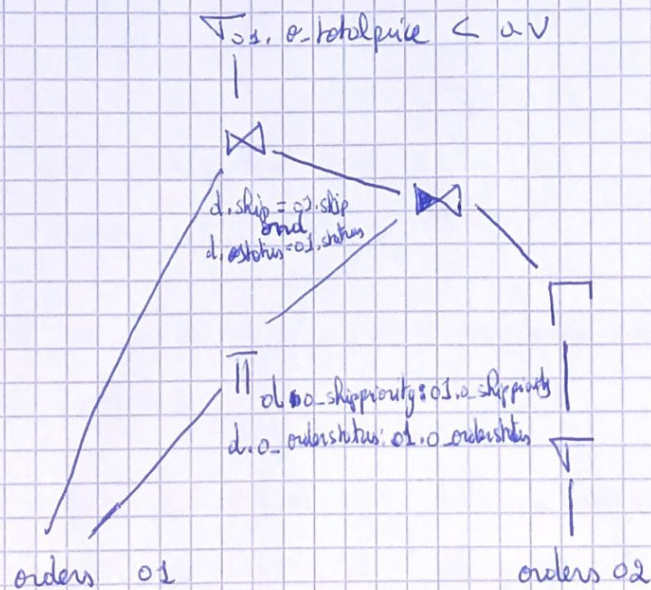 σ o1. o_totalprice < av
⋈
d.ship = o1.ship
and
d.ostatus = o1.status
⋈
Γ
Π d.o_shippriority: o1.o_shippriority
d.o_orderstatus: o1.o_orderstatus
σ
orders o1
orders o2